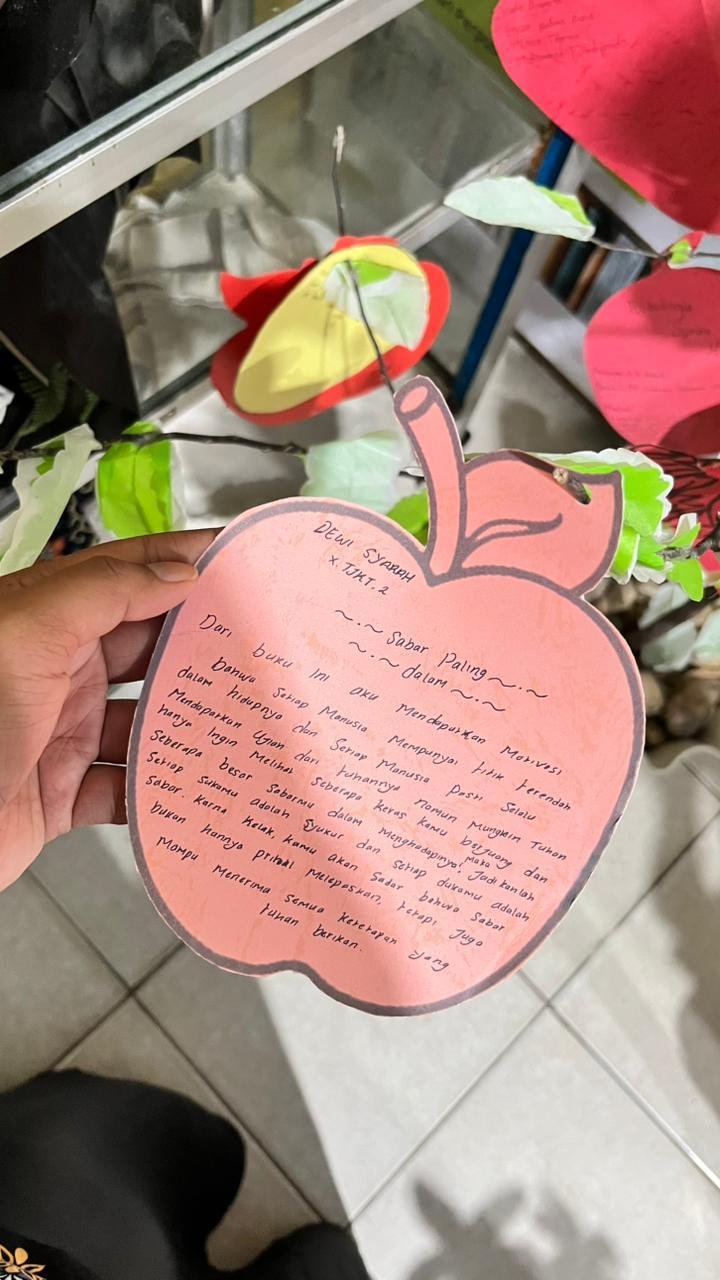 DEWI SYARAH
X.TJKT.2
~.~ Sabar Paling ~.~
~.~ dalam ~.~
Dari buku ini aku mendapatkan Motivasi
bahwa Setiap Manusia Mempunyai titik terendah
dalam hidupnya dan Setiap Manusia pasti Selalu
Mendapatkan Ujian dari tuhannya Namun mungkin Tuhan
hanya Ingin Melihat Seberapa keras kamu berjuang dan
Seberapa besar Sabarmu dalam menghadapinya, maka Jadikanlah
Setiap sukamu adalah Syukur dan setiap dukamu adalah
Sabar. Karna kelak, kamu akan Sadar bahwa Sabar
bukan hannya prihal Melepaskan, tetapi Juga
Mampu Menerima Semua ketetapan yang
tuhan berikan.